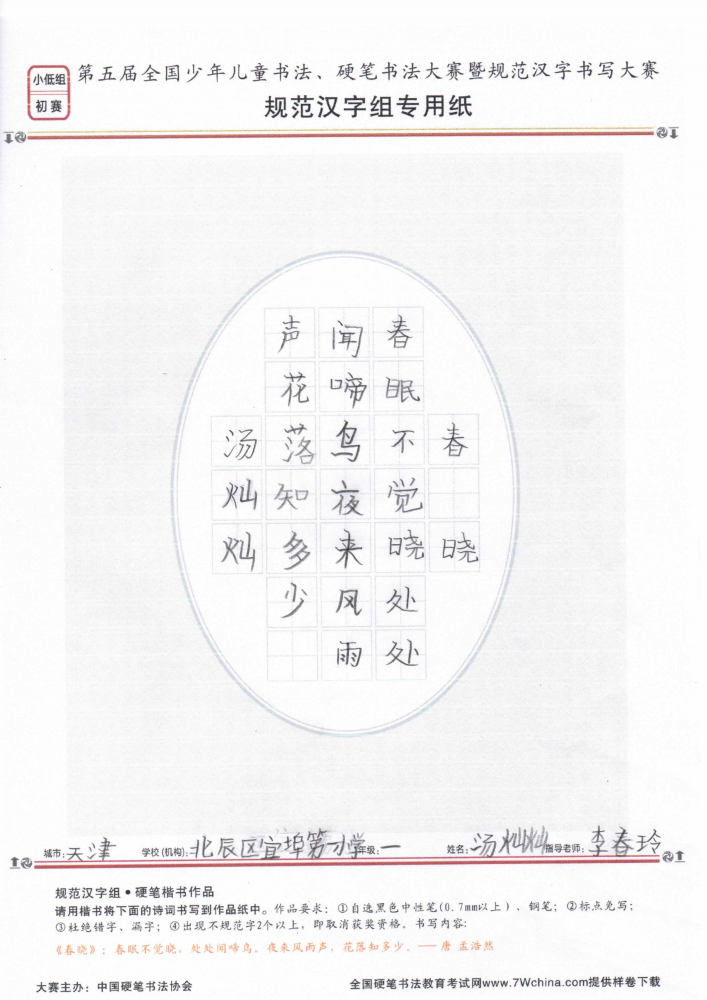 小低组
初赛
第五届全国少年儿童书法、硬笔书法大赛暨规范汉字书写大赛
规范汉字组专用纸
春晓
春眠不觉晓处处
闻啼鸟夜来风雨
声花落知多少
汤灿灿
城市:天津 学校(机构):北辰区宜 年级:一 姓名:汤灿灿 指导老师:李春玲
规范汉字组•硬笔楷书作品
请用楷书将下面的诗词书写到作品纸中。作品要求：①自选黑色中性笔(0.7mm以上)、钢笔；②标点免写；
③杜绝错字、漏字；④出现不规范字2个以上，即取消获奖资格。书写内容:
《春晓》：春眠不觉晓，处处闻啼鸟。夜来风雨声，花落知多少。——唐 孟浩然
大赛主办：中国硬笔书法协会 全国硬笔书法教育考试网www.7Wchina.com提供样卷下载